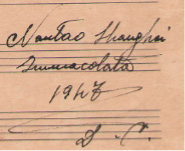 Nantao Shanghai
Immacolata
1947
D. C.